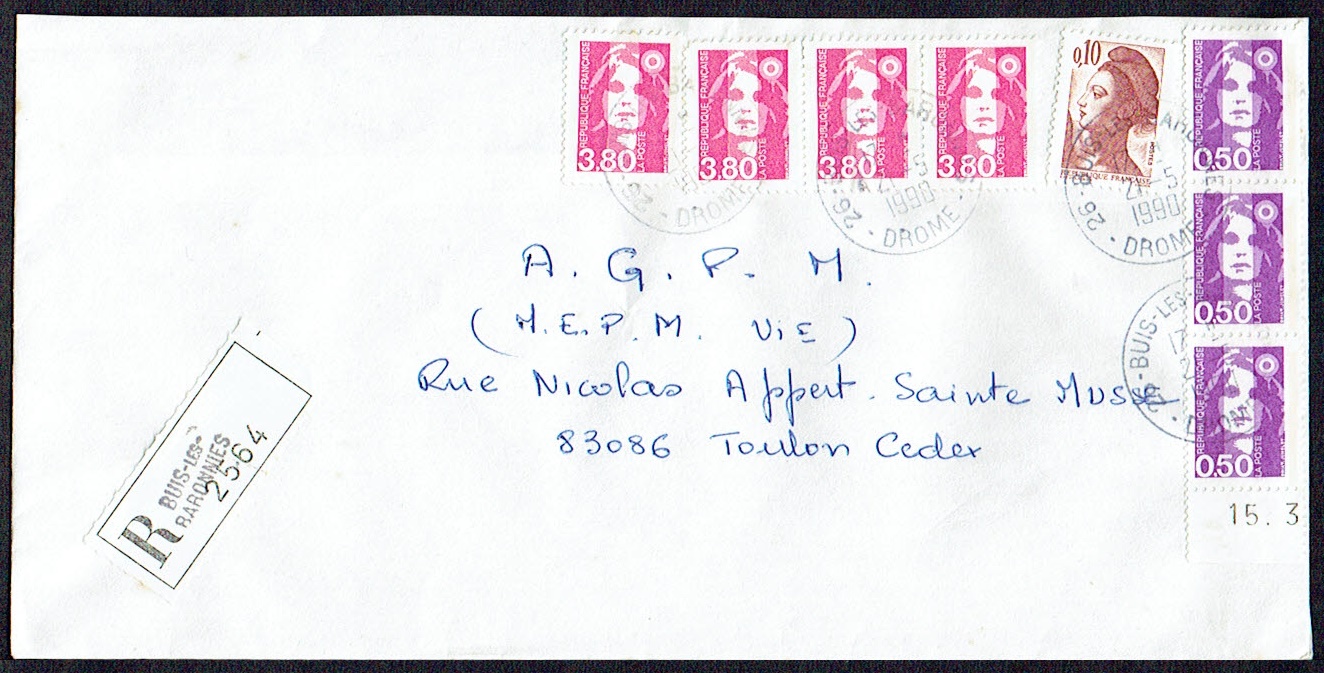 RÉPUBLIQUE FRANÇAISE 3.80 LA POSTE
RÉPUBLIQUE FRANÇAISE 3.80 LA POSTE
RÉPUBLIQUE FRANÇAISE 3.80 LA POSTE
RÉPUBLIQUE FRANÇAISE 3.80 LA POSTE
0,10
POSTES
RÉPUBLIQUE FRANÇAISE
RÉPUBLIQUE FRANÇAISE 0.50 LA POSTE
RÉPUBLIQUE FRANÇAISE 0.50 LA POSTE
RÉPUBLIQUE FRANÇAISE 0.50 LA POSTE
15.3
26 - DROME
26 - DROME -
1990
26 - BUIS-LES-BARONNIES
1990
DROME
26 - BUIS-LES-
17
A. G. P. M.
(M.E.P.M. ViE)
Rue Nicolas Appert. Sainte Musse
83086 Toulon Cedex
R
BUIS-LES-
BARONNIES
2564